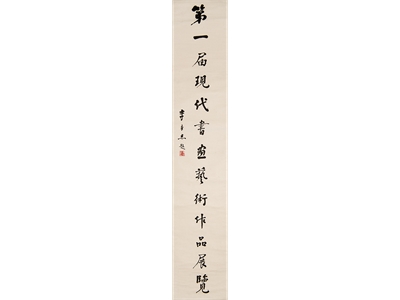 第一届現代書画藝術作品展覽